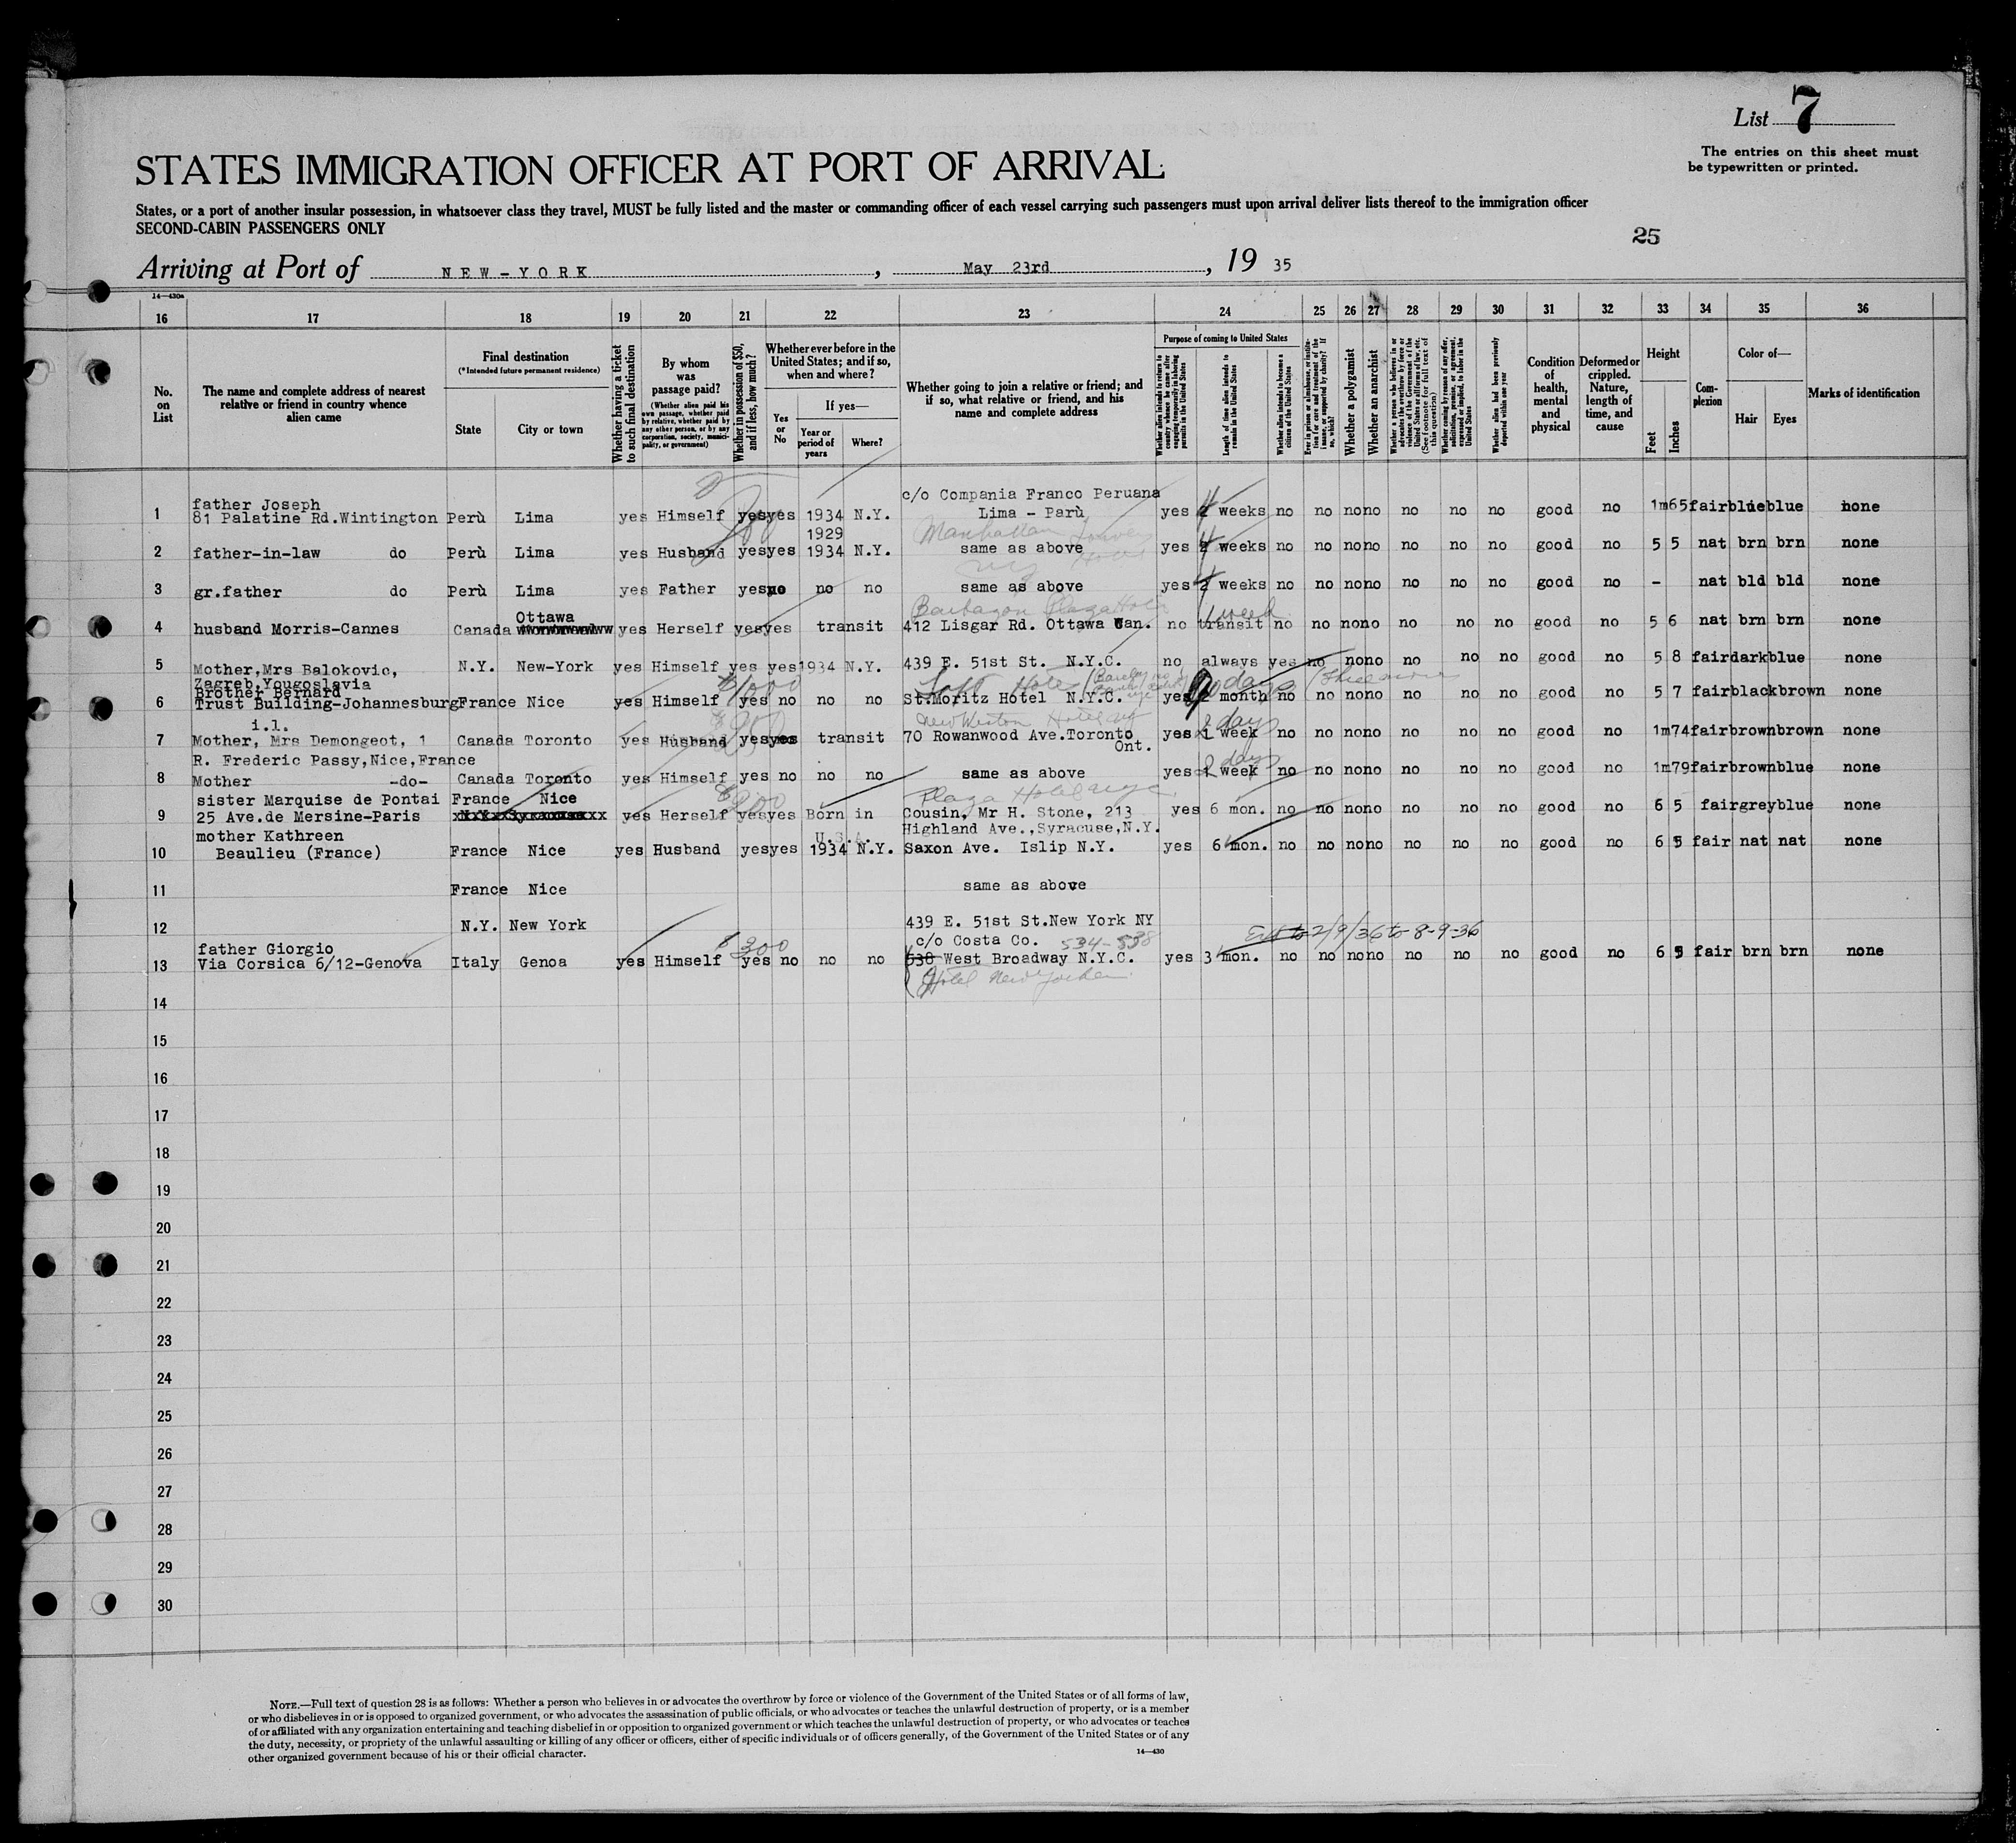 List 7
The entries on this sheet must
be typewritten or printed.
STATES IMMIGRATION OFFICER AT PORT OF ARRIVAL
States, or a port of another insular possession, in whatsoever class they travel, MUST be fully listed and the master or commanding officer of each vessel carrying such passengers must upon arrival deliver lists thereof to the immigration officer
SECOND-CABIN PASSENGERS ONLY
25
Arriving at Port of NEW-YORK, May 23rd, 19 35
14—430a
16 17 18 19 20 21 22 23 24 25 26 27 28 29 30 31 32 33 34 35 36
No. on List
The name and complete address of nearest relative or friend in country whence alien came
Final destination
(*Intended future permanent residence)
State
City or town
Whether having a ticket to such final destination
By whom was passage paid?
(Whether alien paid his own passage, whether paid by relative, whether paid by any other person, or by any corporation, society, municipality, or government)
Whether in possession of $50, and if less, how much?
Whether ever before in the United States; and if so, when and where?
Yes or No
If yes—
Year or period of years
Where?
Whether going to join a relative or friend; and if so, what relative or friend, and his name and complete address
Purpose of coming to United States
Length of time alien intends to remain in the United States
Whether alien intends to become a citizen of the United States
Whether a polygamist
Whether an anarchist
Whether alien had been previously deported within one year
Condition of health, mental and physical
Deformed or crippled. Nature, length of time, and cause
Height
Feet
Inches
Complexion
Color of—
Hair
Eyes
Marks of identification
father Joseph c/o Compania Franco Peruana
1 81 Palatine Rd.Wintington Perù Lima yes Himself yes yes 1934 N.Y. Lima - Parù yes 2 weeks no no no no no no no good no 1m65 fair blue blue none
1929 Manhattan Towers
2 father-in-law do Perù Lima yes Husband yes yes 1934 N.Y. same as above yes 2 weeks no no no no no no no good no 5 5 nat brn brn none
3 gr.father do Perù Lima yes Father yes no no no same as above yes 2 weeks no no no no no no no good no - nat bld bld none
Ottawa Barbazon Plaza Hotel 1 week
4 husband Morris-Cannes Canada yes Herself yes yes transit 412 Lisgar Rd. Ottawa Can. no transit no no no no no no no good no 5 6 nat brn brn none
5 Mother,Mrs Balokovic, N.Y. New-York yes Himself yes yes 1934 N.Y. 439 E. 51st St. N.Y.C. no always yes no no no no no no good no 5 8 fair dark blue none
Zagreb,Yougoslavia
Brother Bernard $1000 days
6 Trust Building-Johannesburg France Nice yes Himself yes no no no St.Moritz Hotel N.Y.C. yes 2 month no no no no no no no good no 5 7 fair black brown none
i.l. New Weston Hotel 2 days
7 Mother, Mrs Demongeot, 1 Canada Toronto yes Husband yes yes transit 70 Rowanwood Ave.Toronto yes 1 week no no no no no no no good no 1m74 fair brown brown none
Ont.
R. Frederic Passy,Nice,France 2 days
8 Mother -do- Canada Toronto yes Himself yes no no no same as above yes 1 week no no no no no no no good no 1m79 fair brown blue none
sister Marquise de Pontai France Nice $200 Plaza Hotel nyc
9 25 Ave.de Mersine-Paris yes Herself yes yes Born in Cousin, Mr H. Stone, 213 yes 6 mon. no no no no no no no good no 6 5 fair grey blue none
mother Kathreen U.S.A. Highland Ave.,Syracuse,N.Y.
10 Beaulieu (France) France Nice yes Husband yes yes 1934 N.Y. Saxon Ave. Islip N.Y. yes 6 mon. no no no no no no no good no 6 5 fair nat nat none
11 France Nice same as above
12 N.Y. New York 439 E. 51st St.New York NY
father Giorgio $300 c/o Costa Co. 534-538 Ext to 2/9/36 to 8-9-36
13 Via Corsica 6/12-Genova Italy Genoa yes Himself yes no no no 638 West Broadway N.Y.C. yes 3 mon. no no no no no no no good no 6 5 fair brn brn none
Hotel New Yorker
14
15
16
17
18
19
20
21
22
23
24
25
26
27
28
29
30
NOTE.—Full text of question 28 is as follows: Whether a person who believes in or advocates the overthrow by force or violence of the Government of the United States or of all forms of law,
or who disbelieves in or is opposed to organized government, or who advocates the assassination of public officials, or who advocates or teaches the unlawful destruction of property, or is a member
of or affiliated with any organization entertaining and teaching disbelief in or opposition to organized government or which teaches the unlawful destruction of property, or who advocates or teaches
the duty, necessity, or propriety of the unlawful assaulting or killing of any officer or officers, either of specific individuals or of officers generally, of the Government of the United States or of any
other organized government because of his or their official character.
14—430